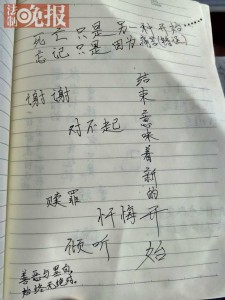 法制晚报
死亡只是另一种开始……
忘记只是因为痛苦(错误)
谢谢
对不起
结束意味着新的开始
赎罪
忏悔
倾听
善恶与黑白，
始终无绝对。